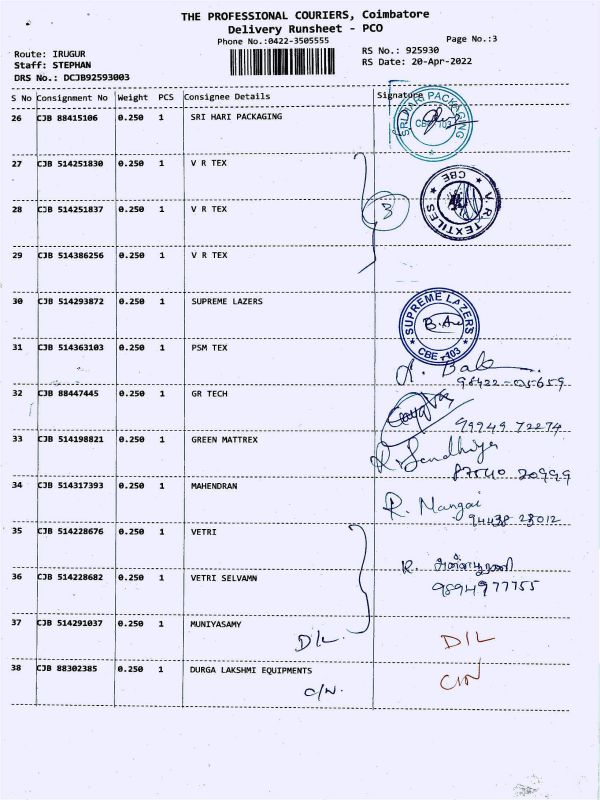 THE PROFESSIONAL COURIERS, Coimbatore
Delivery Runsheet - PCO
Phone No.:0422-3505555
Page No.:3
Route: IRUGUR
RS No.: 925930
Staff: STEPHAN
RS Date: 20-Apr-2022
DRS No.: DCJB92593003
S No Consignment No Weight PCS Consignee Details Signature
26 CJB 88415106 0.250 1 SRI HARI PACKAGING
SRI HARI PACKAGING
27 CJB 514251830 0.250 1 V R TEX
28 CJB 514251837 0.250 1 V R TEX
3
V. R. TEXTILES ★ CBE ★
29 CJB 514386256 0.250 1 V R TEX
30 CJB 514293872 0.250 1 SUPREME LAZERS
SUPREME LAZERS ★ CBE -103 ★
31 CJB 514363103 0.250 1 PSM TEX
98422-05659
32 CJB 88447445 0.250 1 GR TECH
99949 72274
33 CJB 514198821 0.250 1 GREEN MATTREX
R. Sandhiya
87540 20999
34 CJB 514317393 0.250 1 MAHENDRAN
R. Mangai
94438 28012
35 CJB 514228676 0.250 1 VETRI
36 CJB 514228682 0.250 1 VETRI SELVAMN
R.
9894977755
37 CJB 514291037 0.250 1 MUNIYASAMY
D/L D/L
38 CJB 88302385 0.250 1 DURGA LAKSHMI EQUIPMENTS
C/N. C/N